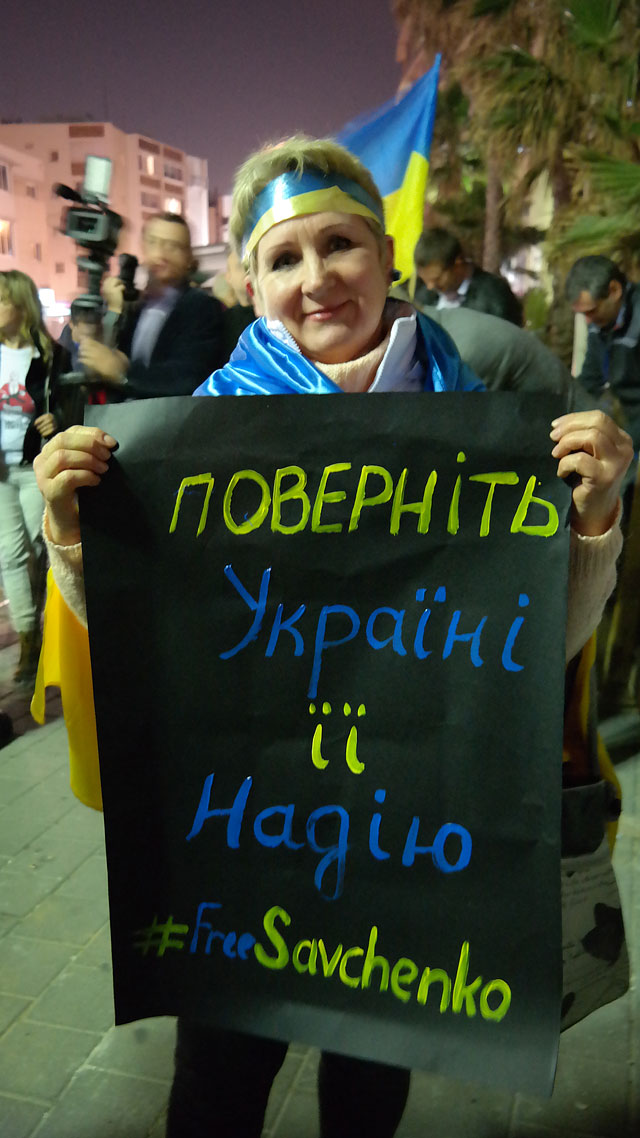 ПОВЕРНІТЬ
Україні
її
Надію
#FreeSavchenko